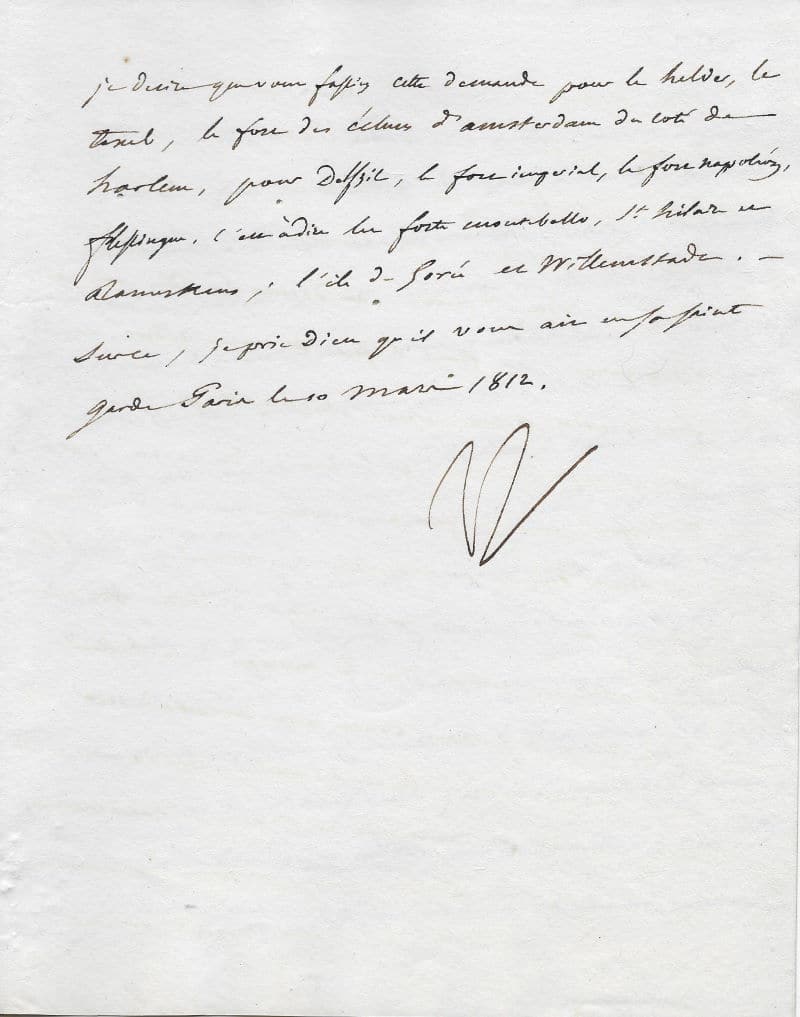 je desire que vous fassiez cette demande pour le helder, le
texel, le fort des écluses d'amsterdam du coté de
harlem, pour Delfzil, le fort imperial, le fort napoléon,
flessingue, c'est à dire les forts montebello, St hilaire et
Rameskens; l'ile de Gorée et Willemstadt. —
Surce, je prie Dieu qu'il vous ait en sa sainte
garde Paris le 10 mars 1812.